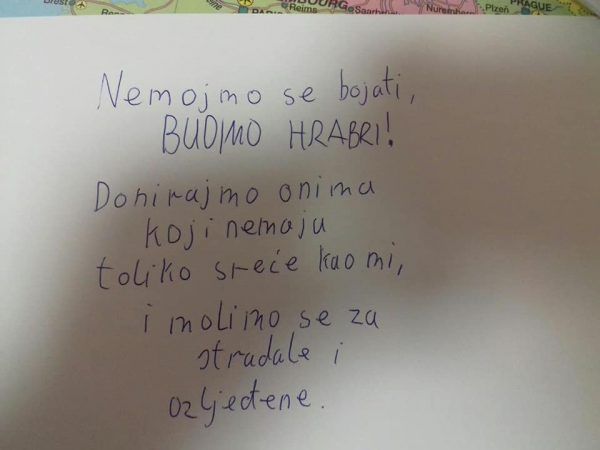 Brest
Reims
Saarb
Nuremberg
Plzeň
PRAGUE
Nemojmo se bojati,
BUDIMO HRABRI!
Donirajmo onima
koji nemaju
toliko sreće kao mi,
i molimo se za
stradale i
ozljeđene.